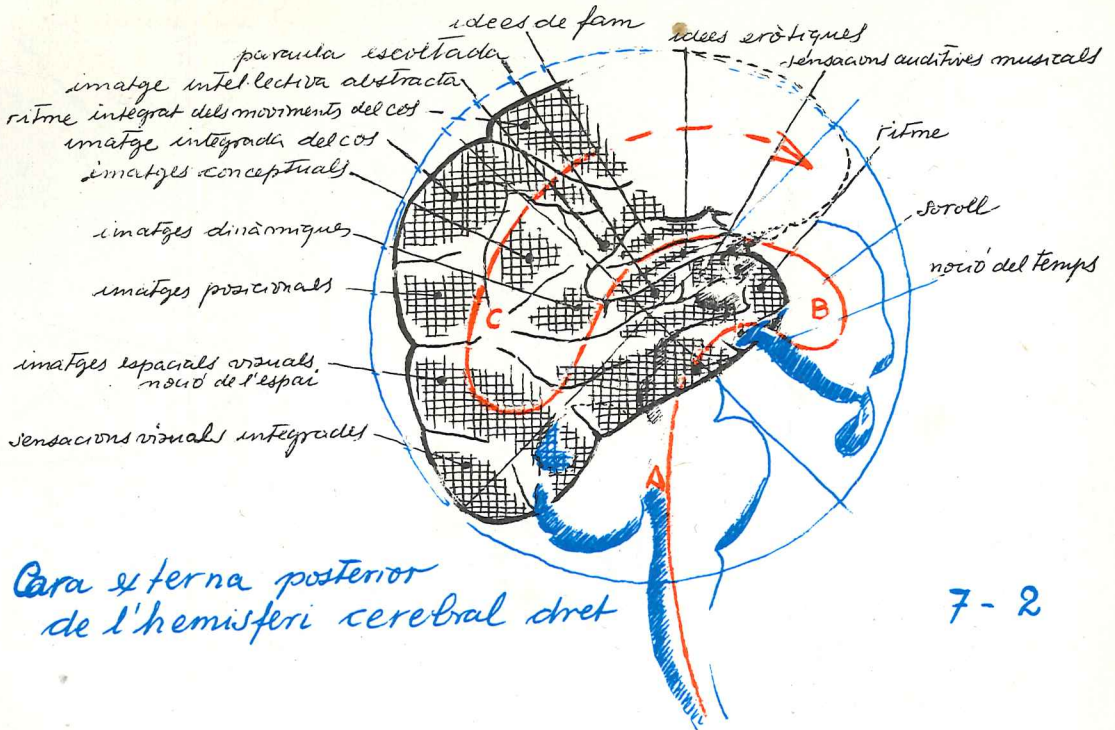 idees de fam
idees eròtiques
paraula escoltada
sensacions auditives musicals
imatge intel.lectiva abstracta
ritme integrat dels moviments del cos
ritme
imatge integrada del cos
imatges conceptuals
soroll
imatges dinàmiques
noció del temps
imatges posicionals
B
C
imatges espacials visuals
noció de l'espai
sensacions visuals integrades
A
Cara externa posterior
de l'hemisferi cerebral dret
7-2